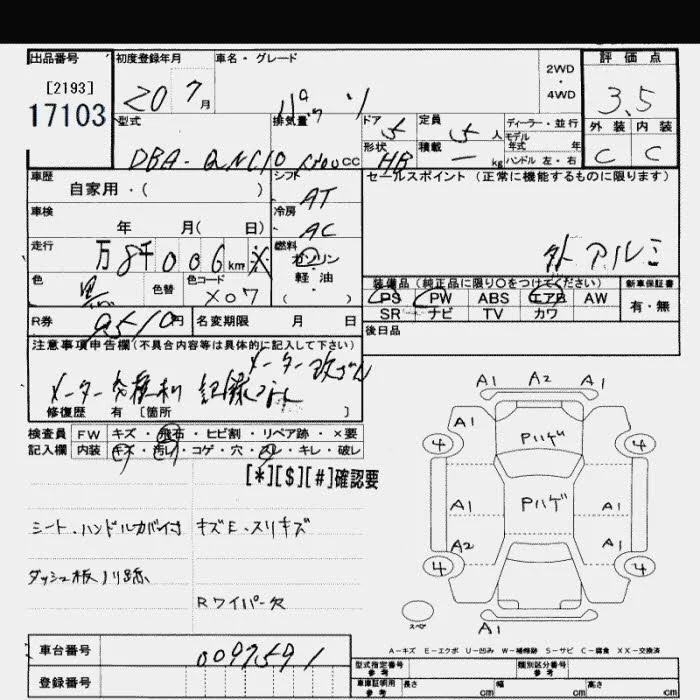 出品番号 初度登録年月 車名・グレード 評価点
[2193]
17103
20 7月
2WD
・
4WD
3.5
パッソ
型式 排気量 ドア 5 定員 5人 ディーラー・並行 外装 内装
モデル
年式 年
DBA-QNC10 cc 形状 HB 積載 ー kg ハンドル 左・右 C C
車歴 シフト セールスポイント(正常に機能するものに限ります)
自家用・( ) AT
車検 冷房
年 月( 日) AC
外 アルミ
走行 燃料
万 8千 0 0 6 km ※ ガソリン
軽・油
( )
色 色替 色コード
黒 X07
装備品(純正品に限り○をつけてください) 新車保証書
PS PW ABS エアB AW 有・無
SR ナビ TV カワ
R券 9510円 名変期限 月 日
後日品
注意事項申告欄(不具合内容等は具体的に記入して下さい)
メーター改ざん
メーター交換有 記録なし
修復歴 有 [箇所 ]
検査員 FW キズ・飛石・ヒビ割・リペア跡・×要
記入欄 内装 キズ・汚レ・コゲ・穴・スレ・キレ・破レ
[*][$][#]確認要
シート、ハンドルカバー付 キズE・スリキズ
ダッシュ板ノリ跡
Rワイパー欠
A1 A2 A1
A1 A1
4 Pハゲ 4
A1 Pハゲ A1
A2 A1
4 4
スペア
A1
A-キズ E-エクボ U-凹み W-補修跡 S-サビ C-腐食 XX-交換済
車台番号 0097591
登録番号
型式指定番号 参考 類別区分番号 参考
車庫証明用 参考 長さ cm 幅 cm 高さ cm